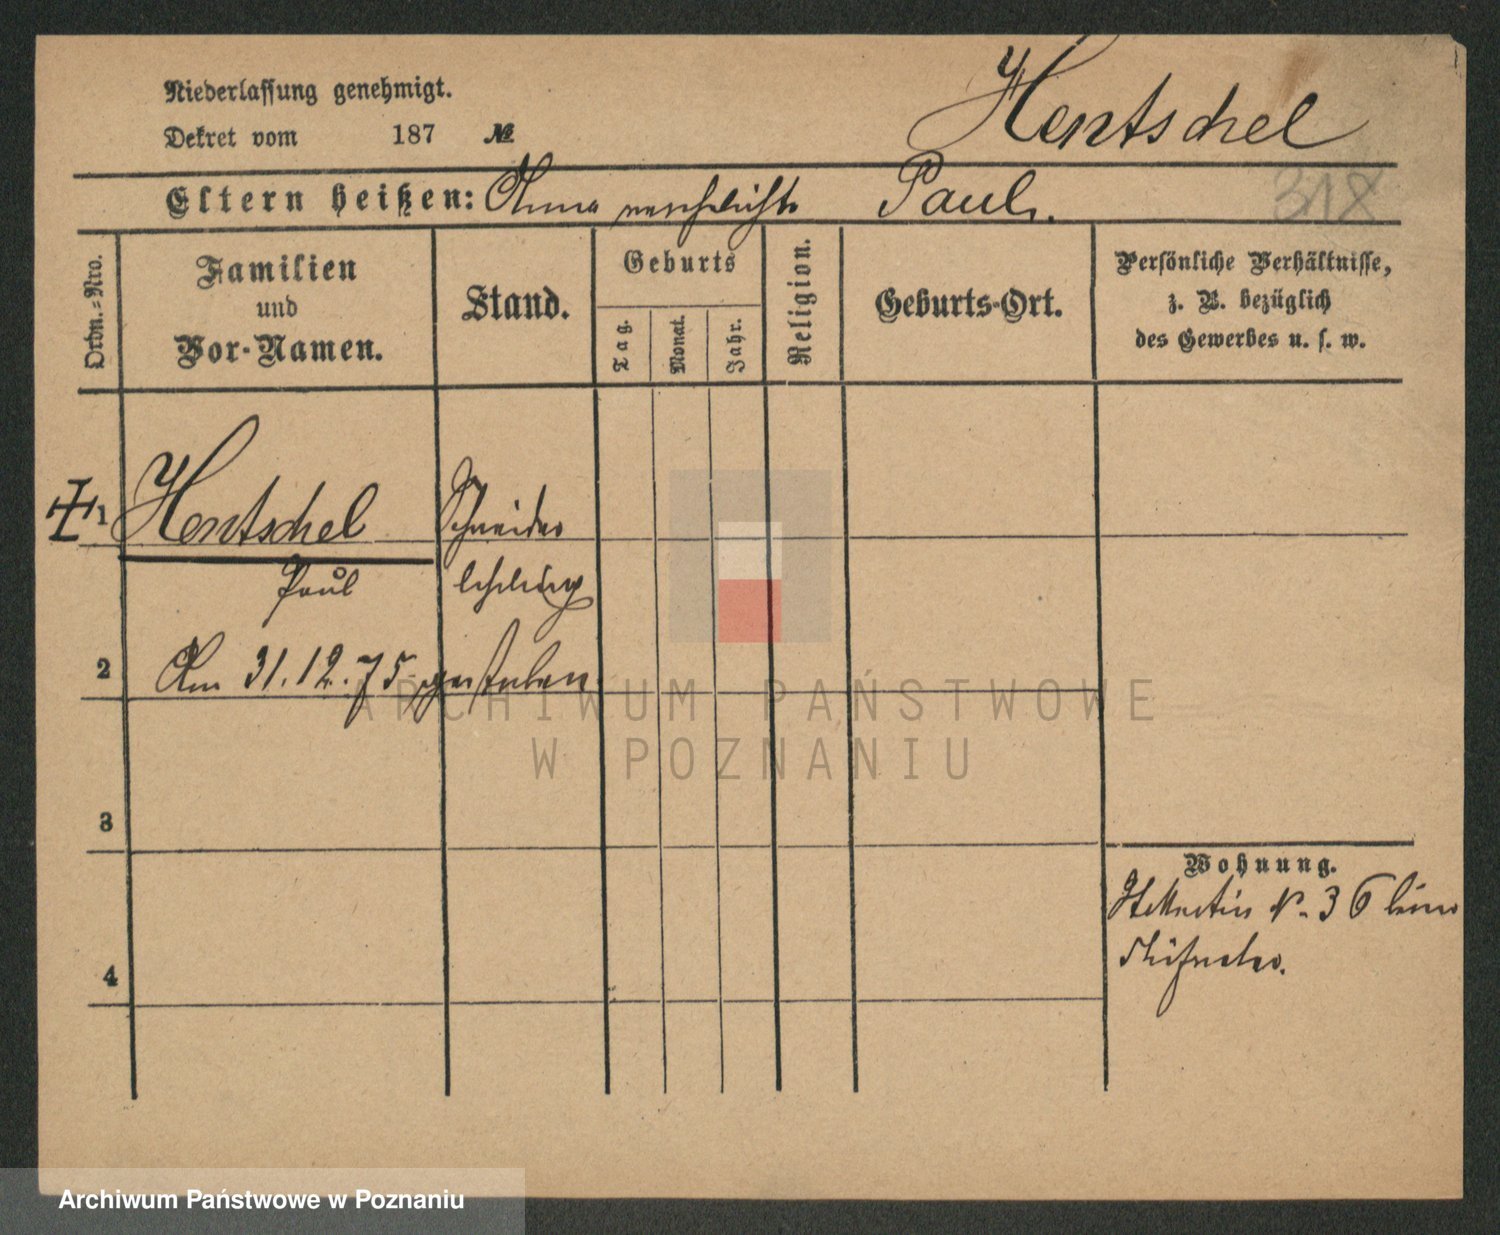 Niederlassung genehmigt.
Dekret vom 187 №
Hentschel
Eltern heißen: Anna verehelicht Paul.
318
Ordn.-Nro.
Familien
und
Vor-Namen.
Stand.
Geburts
Tag.
Monat.
Jahr.
Religion.
Geburts-Ort.
Persönliche Verhältnisse,
z. B. bezüglich
des Gewerbes u. s. w.
1 Hentschel Schneider
Paul lehrling
2 Am 31.12.75 gestorben
3
4
Wohnung.
St Martin N. 36 beim
ARCHIWUM PAŃSTWOWE
W POZNANIU
Archiwum Państwowe w Poznaniu